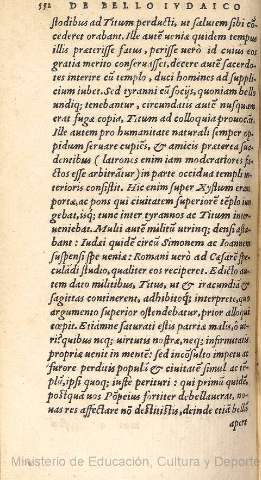 552 DE BELLO IVDAICO
stodibus ad Titum perducti, ut salutem sibi cō-
cederet orabant. Ille autē ueniæ quidem tempus
illis præterisse fatus, perisse uerò id cuius eos
gratia meritò conseruasset, decere autē sacerdo-
tes interire cū templo, duci homines ad suppli-
cium iubet. Sed tyranni eū socijs, quoniam bello
undiq; tenebantur, circundatis autē nusquam
erat fugæ copia, Titum ad colloquiū prouocāt.
Ille autem pro humanitate naturali semper op-
pidum seruare cupiēs, & amicis præterea sua-
dentibus (latrones enim iam moderatiores fa-
ctos esse arbitrātur) in parte occidua templi in-
terioris consistit. Hic enim super Xystum erāt
portæ, ac pons qui ciuitatem superiorē tēplo iun
gebat, isq; tunc inter tyrannos ac Titum inter-
ueniebat. Multi autē militū utrinq; densi asta-
bant: Iudæi quidē circū Simonem ac Ioannem
suspensi spe ueniæ: Romani uerò ad Cæsarē spe-
culādi studio, qualiter eos reciperet. Edicto au-
tem dato militibus, Titus, ut & iracundiā &
sagittas continerent, adhibitoq́; interprete, quo
argumento superior ostendebatur, prior alloqui
cœpit. Etiámne saturati estis patriæ malis, ò ui-
ri: quibus neq; uirtutis nostræ, neq; infirmitatis
propriæ uenit in mentē: sed incōsulto impetu ac
furore perditis populū & ciuitatē simul ac tē-
plū, ipsi quoq; iustè perituri: qui primū quidē,
postquā uos Pōpeius fortiter debellauerat, no-
uas res affectare nō destitistis, deinde etiā bellū
aperte
Ministerio de Educación, Cultura y Deporte